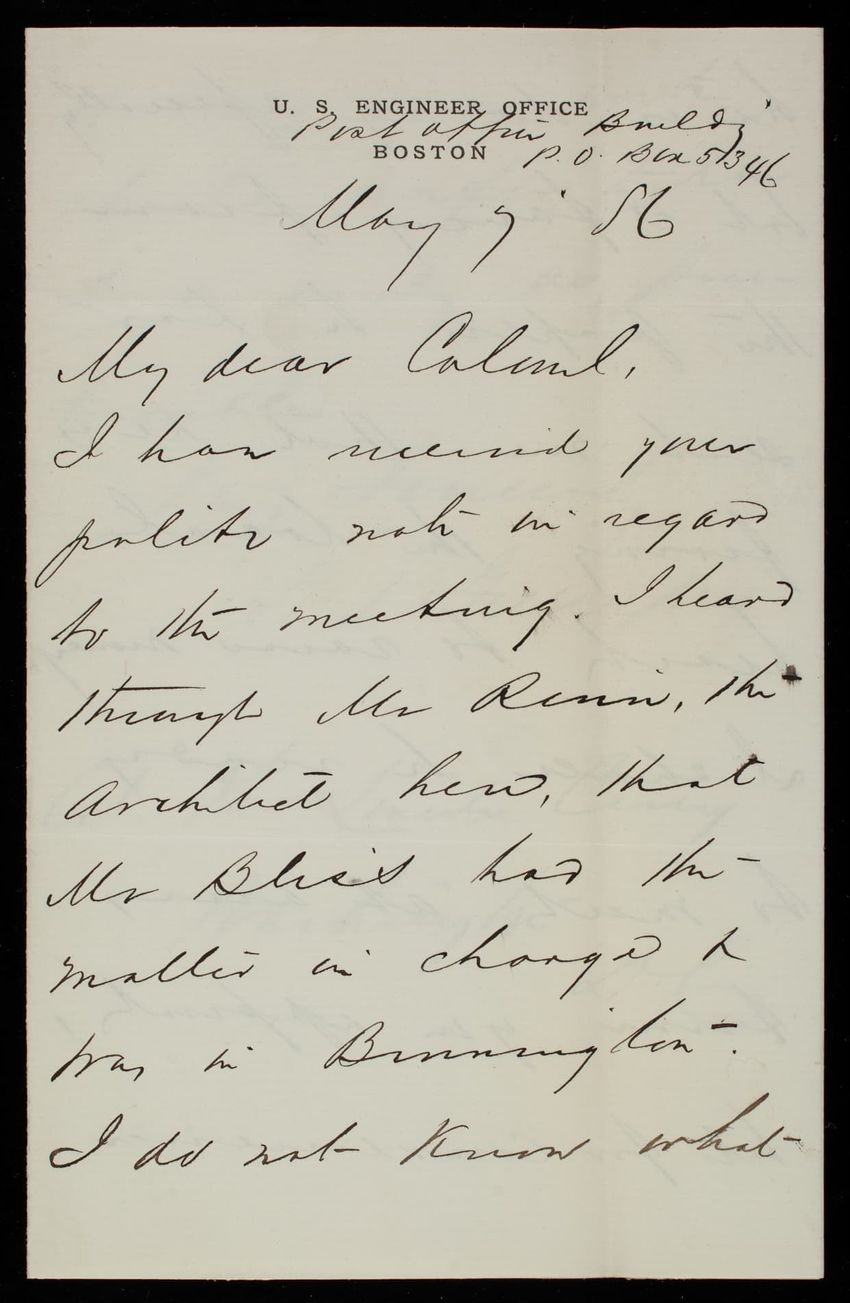 U. S. ENGINEER OFFICE
Post Office Buildg
BOSTON P.O. Box 5346
May 7' 86
My dear Colonel,
I have received your
polite note in regard
to the meeting. I heard
through Mr the
Architect here, that
Mr Bliss had the
matter in charge &
was in Bennington.
I do not know what